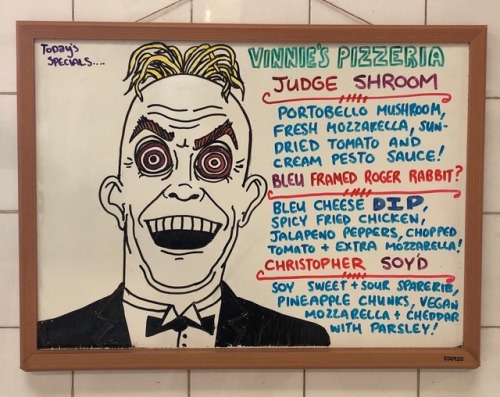 Today's
SPECIALS....
VINNIE'S PIZZERIA
JUDGE SHROOM
PORTOBELLO MUSHROOM,
FRESH MOZZARELLA, SUN-
DRIED TOMATO AND
CREAM PESTO SAUCE!
BLEU FRAMED ROGER RABBIT?
BLEU CHEESE DIP,
SPICY FRIED CHICKEN,
JALAPENO PEPPERS, CHOPPED
TOMATO + EXTRA MOZZARELLA!
CHRISTOPHER SOY'D
SOY SWEET + SOUR SPARERIB,
PINEAPPLE CHUNKS, VEGAN
MOZZARELLA + CHEDDAR
WITH PARSLEY!
STAPLES